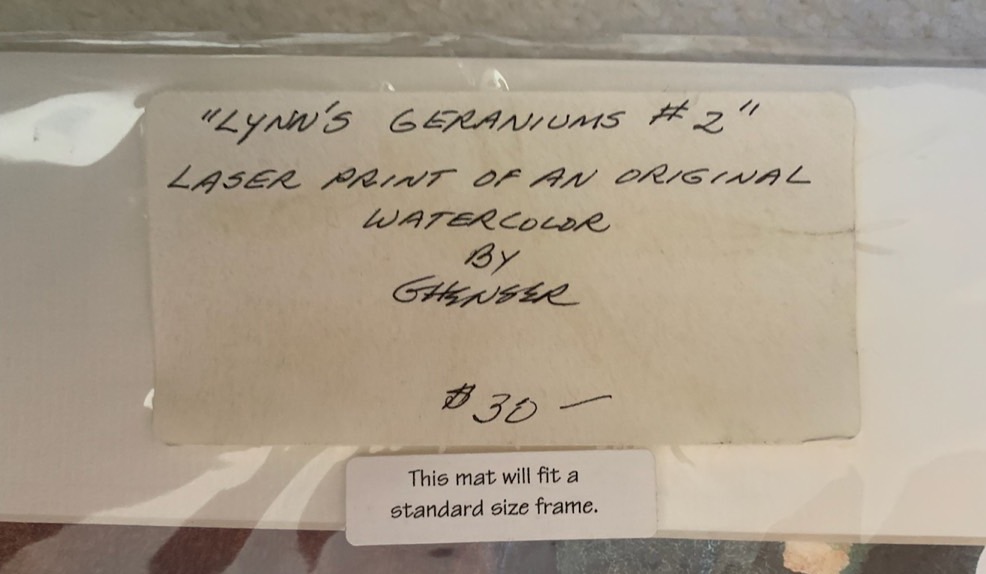 "LYNN'S GERANIUMS #2"
LASER PRINT OF AN ORIGINAL
WATERCOLOR
BY
GHENSER
$30 —
This mat will fit a
standard size frame.